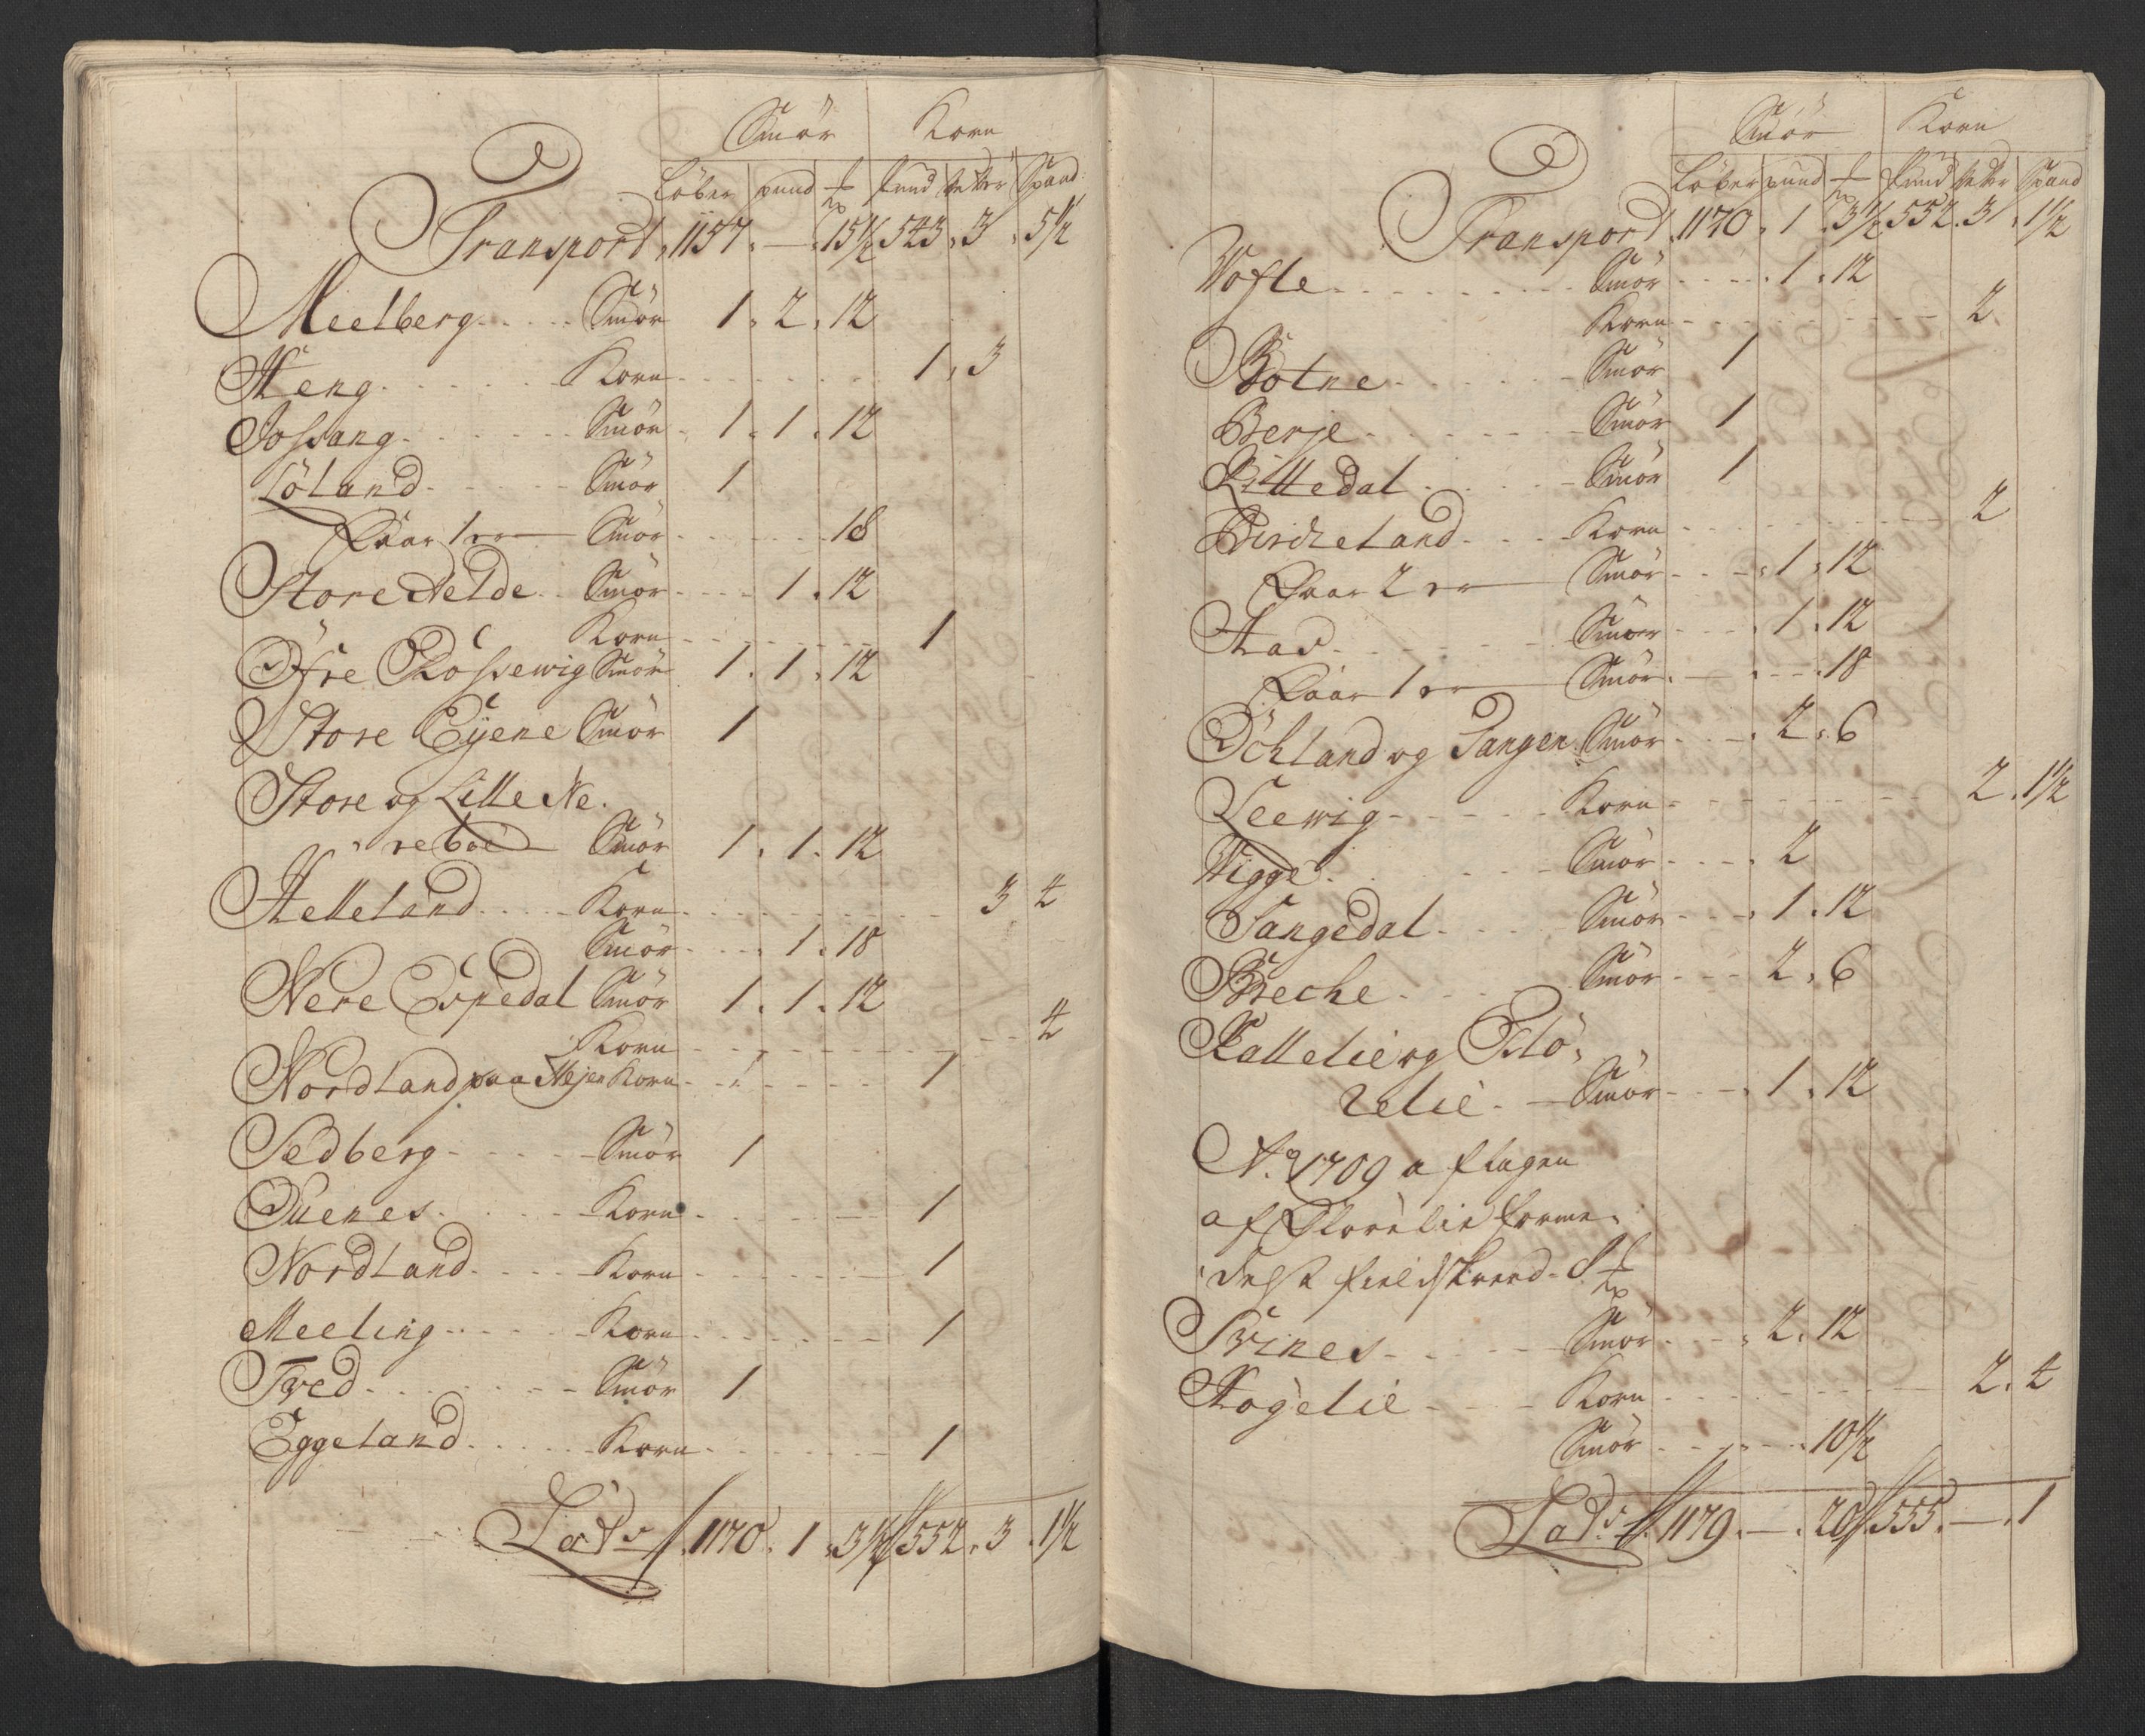 Smör Korn
Löber pund ℔ Pund Vetter Spand
Transport 1157. — . 15½ 543. 3 . 5½
Meelberg Smör 1. 2. 12
Heng Korn 1. 3
Jossang Smör 1. 1. 12
Löland Smör 1
Smör 18
Store Helde Smör 1. 12
Korn 1
Öfre Rossewig Smör 1. 1. 12
Store Eyene Smör 1
Store og Lille Ne.
reböe Smör 1. 1. 12
Helleland Korn 3 4
Smör 1. 18
Nere Espedal Smör 1. 1. 12
Korn 4
Nordland paa Mejen Korn 1
Sedberg Smör 1
Duenes Korn 1
Nordland Korn 1
Meeling Korn 1
Tved Smör 1
Eggeland Korn 1
Lats 1170. 1. 3½ 552. 3 . 1½
Smör Korn
Löber pund ℔ Pund Vetter Spand
Transport 1170. 1. 3½ 552. 3. 1½
Wofle Smör 1. 12
Korn 2
Botne Smör 1
Berje Smör 1
Littedal Smör 1
Bircheland Korn 2
Smör 1. 12
Had Smör 1. 12
Smör 18
Öchland og Tangen Smör 2. 6
Leewig Korn 2. 1½
Wigge Smör 2
Tangedal Smör 1. 12
Breche Smör 2. 6
Kallelie og Flö,
relie Smör 1. 12
Ao 1709 aflagen
af Florelie forme,
delst fieldskreed 8 ℔
Svines Smör 2. 12
Högelie Korn 2. 4
Smör 10½
Lats 1179. — . 20 555. — . 1